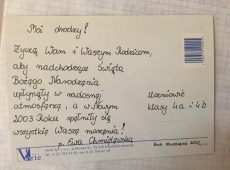 Moi drodzy!
Życzę Wam i Waszym Rodzicom,
aby nadchodzące Święta
Bożego Narodzenia
upłynęły w radosnej
atmosferze, a w Nowym
2003 Roku spełniły się
wszystkie Wasze marzenia!
p. Ewa
Uczniowie
klasy 4a i 4b
Verte